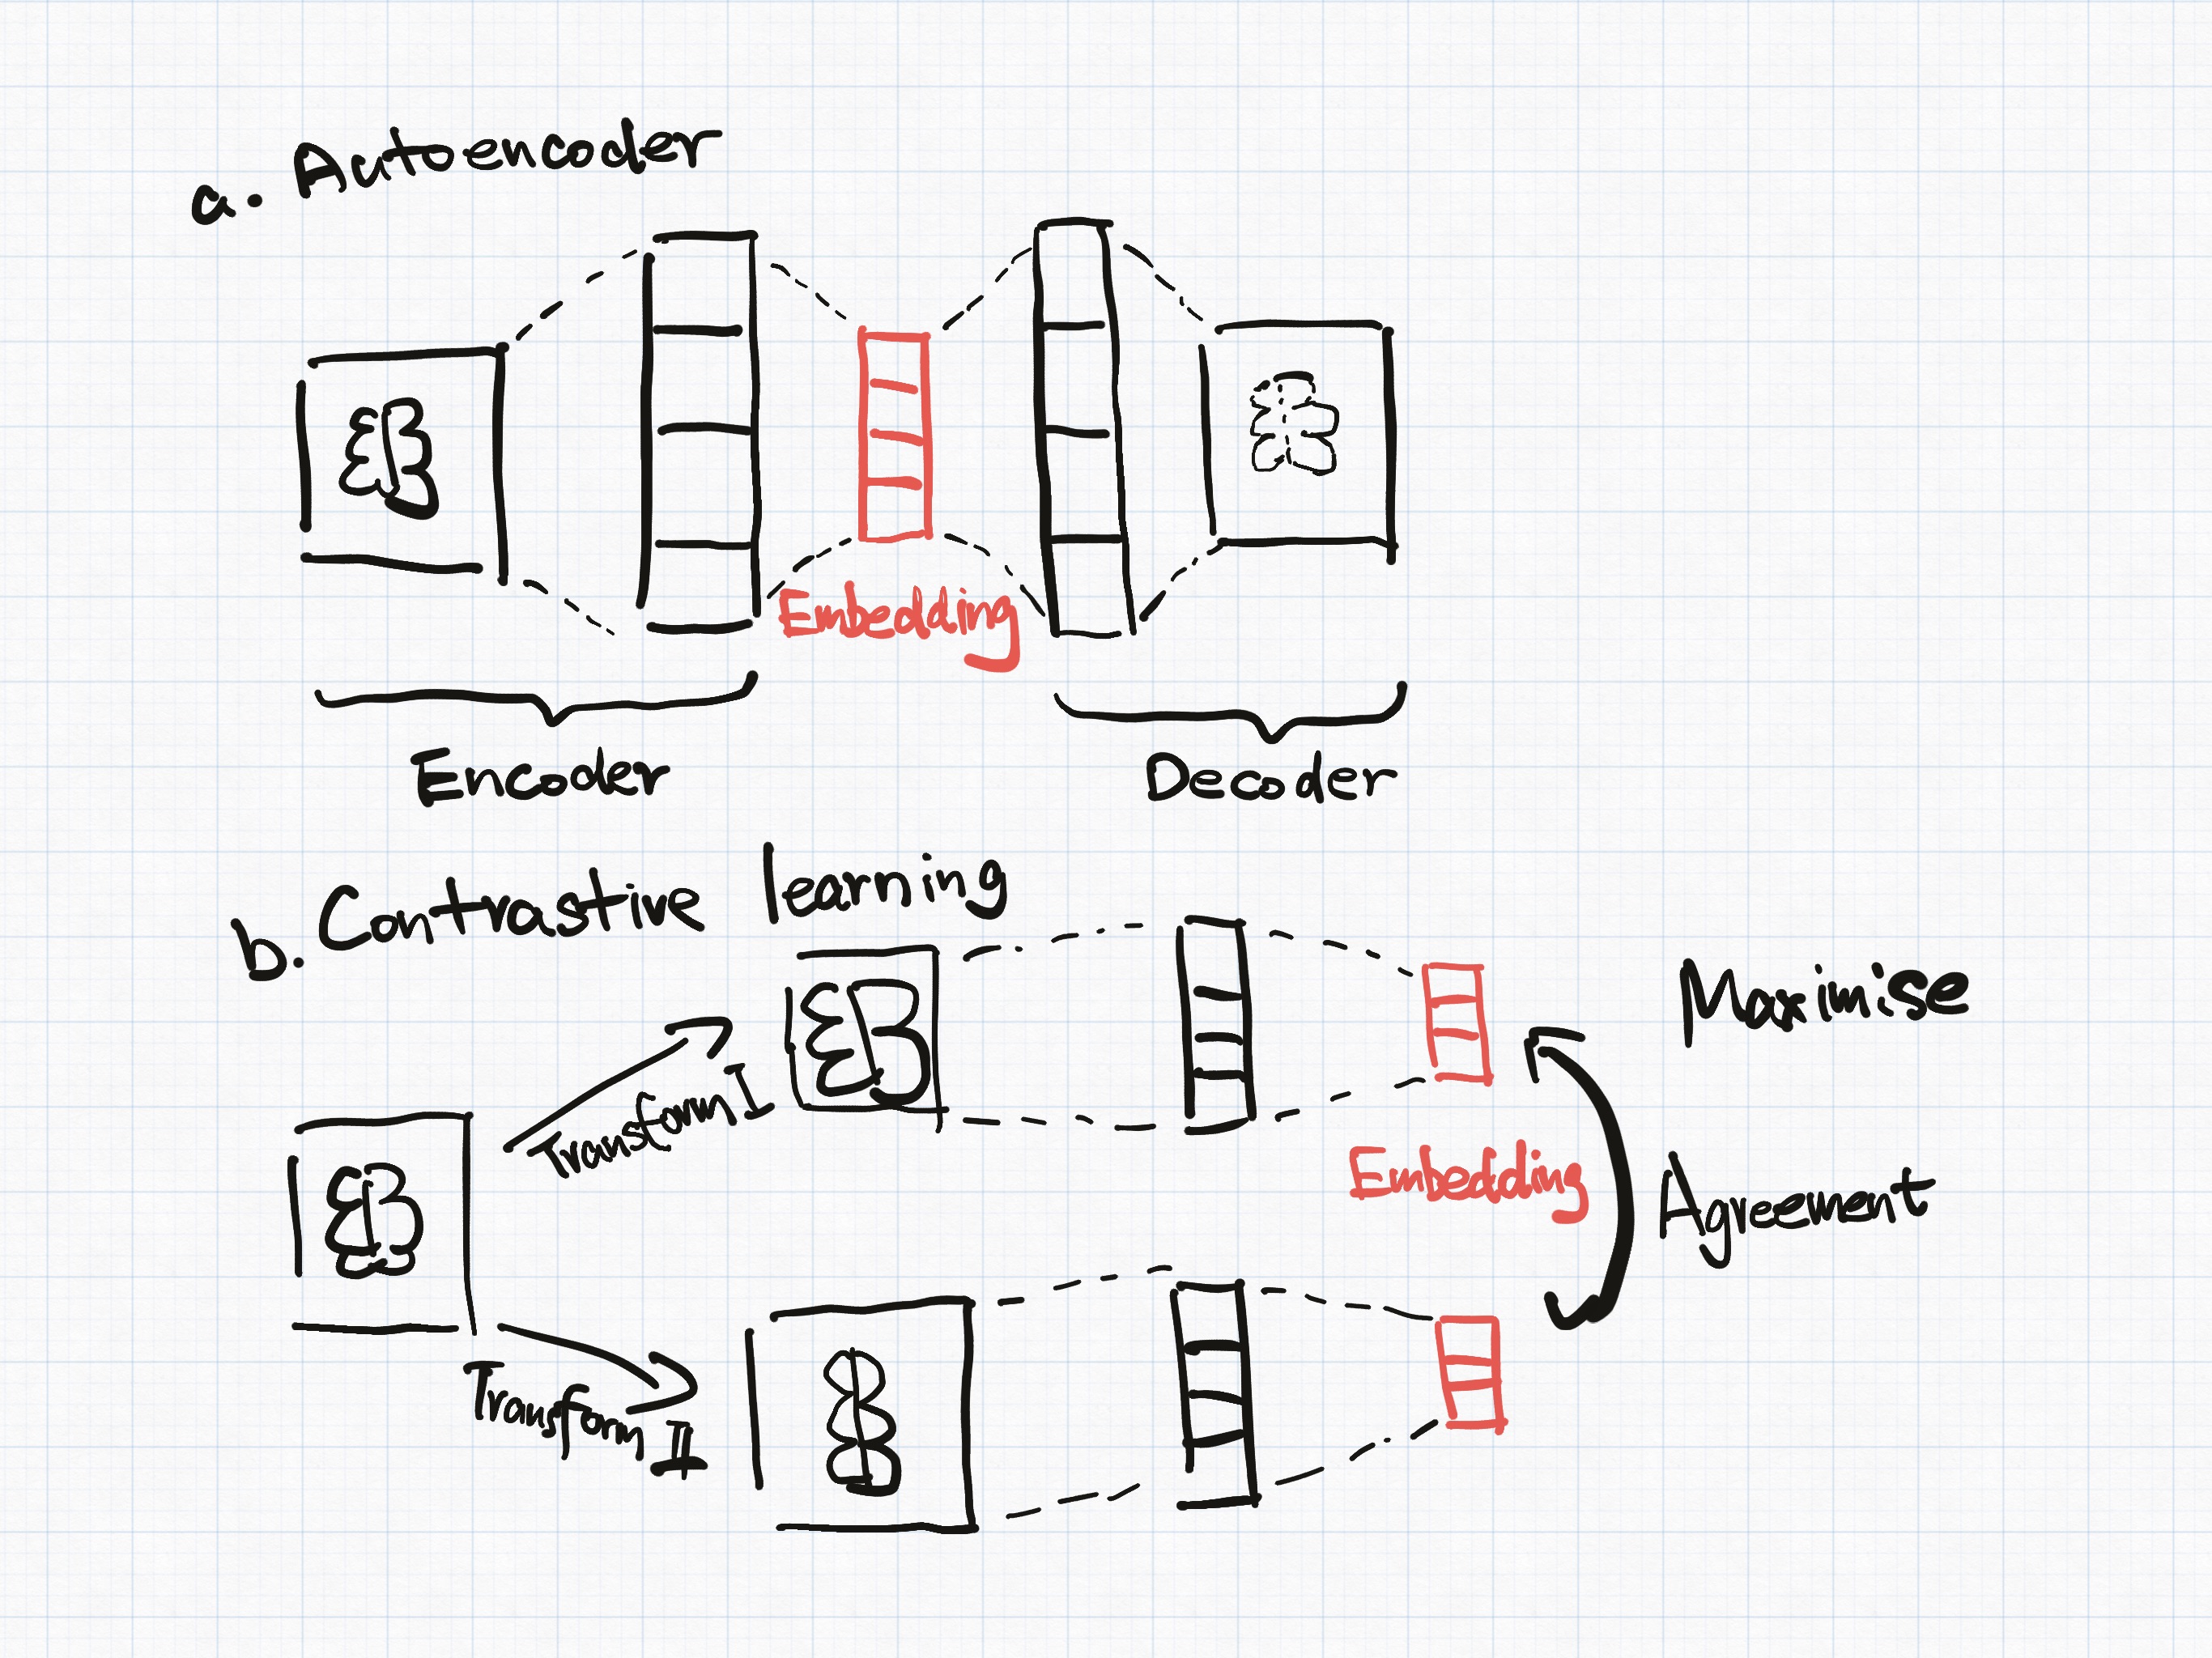 a. Autoencoder
Embedding
Encoder
Decoder
b. Contrastive learning
Transform I
Transform II
Embedding
Maximise
Agreement